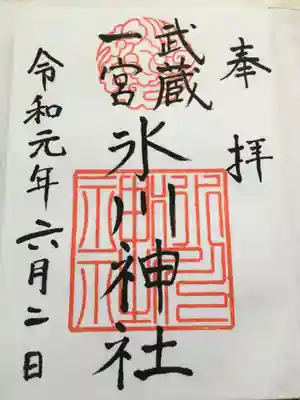 奉拝
武蔵
一宮
氷川神社
令和元年六月二日